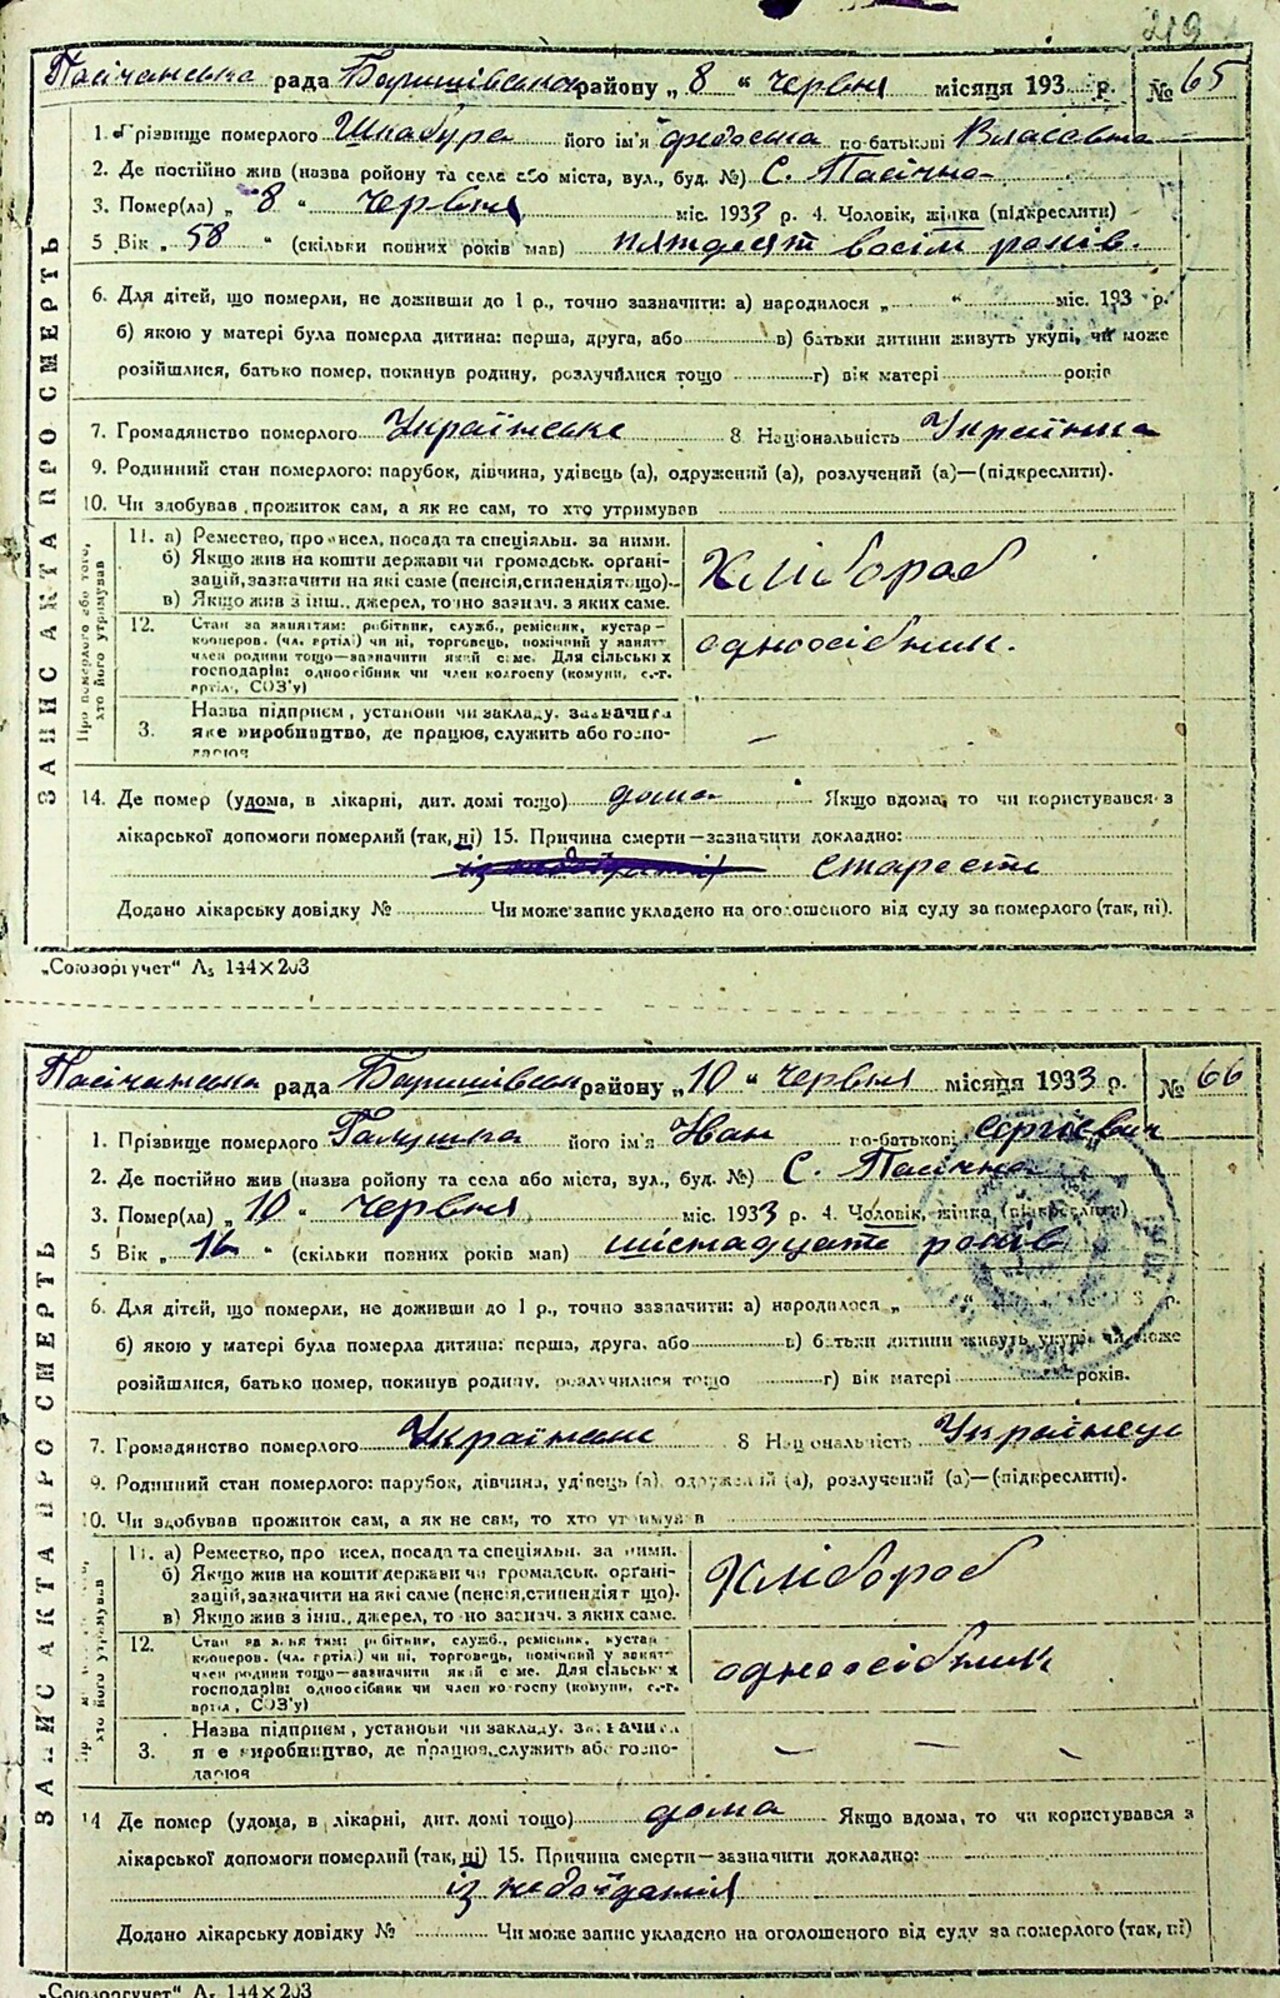 219
Пасічанська рада Баришівського району „ 8 “ червня місяця 193 р. № 65
ЗАПИС АКТА ПРО СМЕРТЬ
1. Прізвище померлого Шкабура його ім'я Федоська по-батькові Власівна
2. Де постійно жив (назва ройону та села або міста, вул., буд. №) С. Пасічна
3. Помер(ла) „ 8 “ червня міс. 1933 р. 4. Чоловік, жінка (підкреслити)
5 Вік „ 58 “ (скільки повних років мав) пятдесят восім років.
6. Для дітей, що померли, не доживши до 1 р., точно зазначити: а) народилося „ “ міс. 193 р.
б) якою у матері була померла дитина: перша, друга, або в) батьки дитини живуть укупі, чи може
розійшлися, батько помер, покинув родину, розлучилися тощо г) вік матері років
7. Громадянство померлого Українське 8 Національність Українка
9. Родинний стан померлого: парубок, дівчина, удівець (а), одружений (а), розлучений (а)—(підкреслити).
10. Чи здобував прожиток сам, а як не сам, то хто утримував
Про померлого або того, хто його утримував
11. а) Ремество, промисел, посада та спеціяльн. за ними.
б) Якщо жив на кошти держави чи громадськ. органі-
зацій, зазначити на які саме (пенсія, стипендія тощо)
в) Якщо жив з інш., джерел, точно зазнач. з яких саме.
Хлібороб
12. Стан за заняттям: робітник, служб., ремісник, кустар—
кооперов. (чл. артілі) чи ні, торговець, помічний у занятт
член родини тощо—зазначити який саме. Для сільських
господарів: одноосібник чи член колгоспу (комуни, с.-г.
артіл., СОЗ'у)
одноосібник.
3. Назва підприєм, установи чи закладу, зазначити
яке виробництво, де працює, служить або госпо-
дарює
—
14. Де помер (удома, в лікарні, дит. домі тощо) дома Якщо вдома, то чи користувався з
лікарської допомоги померлий (так, ні) 15. Причина смерти—зазначити докладно:
із недоїдання старости
Додано лікарську довідку № Чи може запис укладено на оголошеного від суду за померлого (так, ні).
„Союзоргучет“ А₅ 144×203
Пасічанська рада Баришівськ району „ 10 “ червня місяця 1933 р. № 66
ЗАПИС АКТА ПРО СМЕРТЬ
1. Прізвище померлого Галушка його ім'я Іван по-батькові Сергієвич
2. Де постійно жив (назва ройону та села або міста, вул., буд. №) С. Пасічна
3. Помер(ла) „ 10 “ червня міс. 1933 р. 4. Чоловік, жінка (підкреслити)
5 Вік „ 16 “ (скільки повних років мав) шістнадцять років
6. Для дітей, що померли, не доживши до 1 р., точно зазначити: а) народилося „ “ міс. 193 р.
б) якою у матері була померла дитина: перша, друга, або в) батьки дитини живуть укупі, чи може
розійшлися, батько помер, покинув родину, розлучилися тощо г) вік матері років.
7. Громадянство померлого Українське 8 Національність Українець
9. Родинний стан померлого: парубок, дівчина, удівець (а), одружений (а), розлучений (а)—(підкреслити).
10. Чи здобував прожиток сам, а як не сам, то хто утримував
11. а) Ремество, промисел, посада та спеціяльн. за ними.
б) Якщо жив на кошти держави чи громадськ. органі-
зацій, зазначити на які саме (пенсія, стипендія тощо).
в) Якщо жив з інш., джерел, точно зазнач. з яких саме.
Хлібороб
12. Стан за заняттям: робітник, служб., ремісник, кустар
кооперов. (чл. артілі) чи ні, торговець, помічний у занятт
член родини тощо—зазначити який саме. Для сільських
господарів: одноосібник чи член колгоспу (комуни, с.-г.
артіл., СОЗ'у)
одноосібник
3. Назва підприєм, установи чи закладу, зазначити
яке виробництво, де працює, служить або госпо-
дарює
— — —
14 Де помер (удома, в лікарні, дит. домі тощо) дома Якщо вдома, то чи користувався з
лікарської допомоги померлий (так, ні) 15. Причина смерти—зазначити докладно:
із недоїдання
Додано лікарську довідку № Чи може запис укладено на оголошеного від суду за померлого (так, ні)
„Союзоргучет“ А₅ 144×203